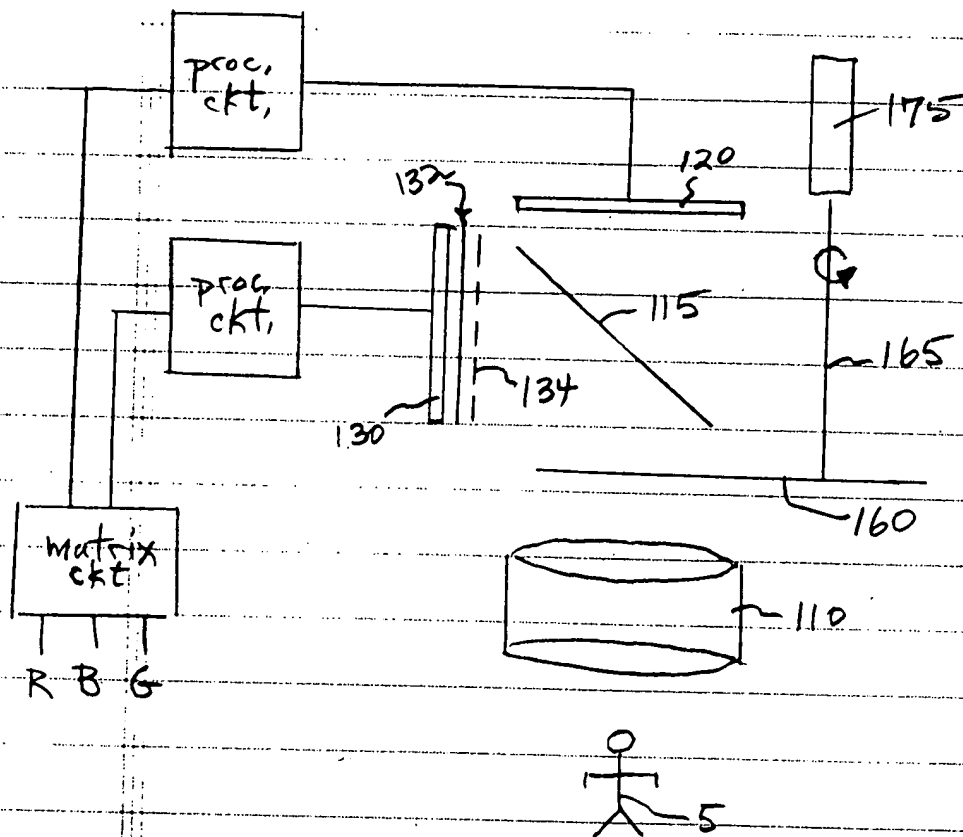 proc.
ckt.
175
120
132
proc.
ckt.
115
165
134
130
160
matrix
ckt
110
R B G
5